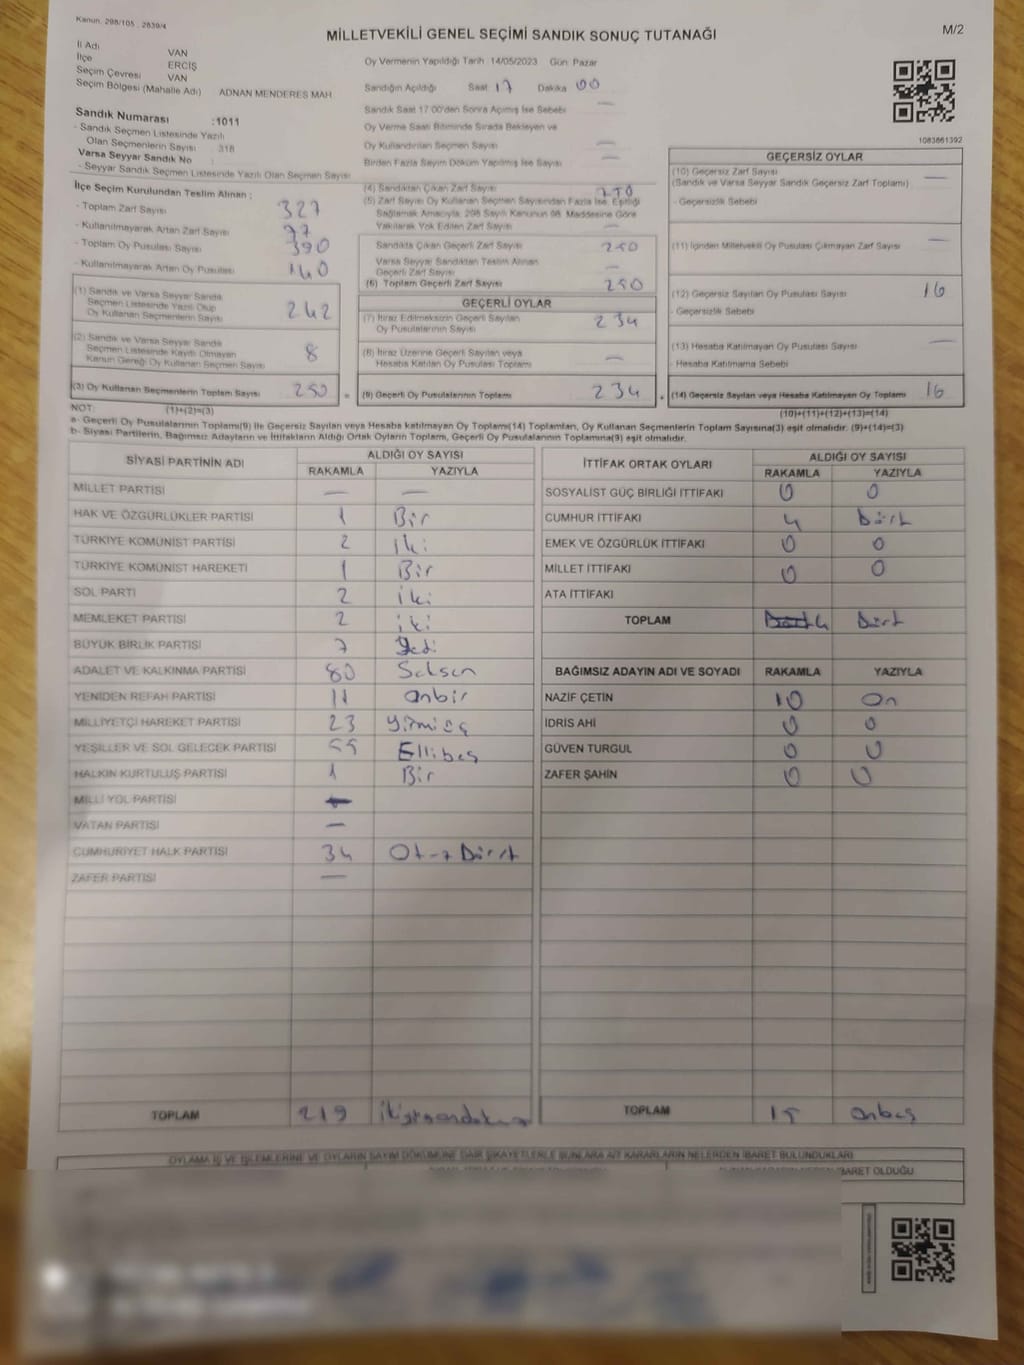 Kanun. 298/105 , 2839/4
M/2
MİLLETVEKİLİ GENEL SEÇİMİ SANDIK SONUÇ TUTANAĞI
İl Adı VAN
İlçe ERCİŞ
Seçim Çevresi VAN
Seçim Bölgesi (Mahalle Adı) ADNAN MENDERES MAH.
Sandık Numarası :1011
- Sandık Seçmen Listesinde Yazılı
Olan Seçmenlerin Sayısı : 318
Varsa Seyyar Sandık No :
- Seyyar Sandık Seçmen Listesinde Yazılı Olan Seçmen Sayısı
Oy Vermenin Yapıldığı Tarih : 14/05/2023 Gün: Pazar
Sandığın Açıldığı Saat 17 Dakika 00
Sandık Saat 17.00'den Sonra Açılmış İse Sebebi —
Oy Verme Saati Bitiminde Sırada Bekleyen ve
Oy Kullandırılan Seçmen Sayısı —
Birden Fazla Sayım Döküm Yapılmış İse Sayısı —
1083661392
İlçe Seçim Kurulundan Teslim Alınan :
- Toplam Zarf Sayısı 327
- Kullanılmayarak Artan Zarf Sayısı 77
- Toplam Oy Pusulası Sayısı 390
- Kullanılmayarak Artan Oy Pusulası 140
(1) Sandık ve Varsa Seyyar Sandık
Seçmen Listesinde Yazılı Olup
Oy Kullanan Seçmenlerin Sayısı 242
(2) Sandık ve Varsa Seyyar Sandık
Seçmen Listesinde Kayıtlı Olmayan
Kanun Gereği Oy Kullanan Seçmen Sayısı 8
(3) Oy Kullanan Seçmenlerin Toplam Sayısı 250
(1)+(2)=(3)
(4) Sandıktan Çıkan Zarf Sayısı 250
(5) Zarf Sayısı Oy Kullanan Seçmen Sayısından Fazla İse, Eşitliği
Sağlamak Amacıyla, 298 Sayılı Kanunun 98. Maddesine Göre
Yakılarak Yok Edilen Zarf Sayısı —
Sandıkta Çıkan Geçerli Zarf Sayısı 250
Varsa Seyyar Sandıktan Teslim Alınan
Geçerli Zarf Sayısı —
(6) Toplam Geçerli Zarf Sayısı 250
GEÇERLİ OYLAR
(7) İtiraz Edilmeksizin Geçerli Sayılan
Oy Pusulalarının Sayısı 234
(8) İtiraz Üzerine Geçerli Sayılan veya
Hesaba Katılan Oy Pusulası Toplamı —
(9) Geçerli Oy Pusulalarının Toplamı 234
GEÇERSİZ OYLAR
(10) Geçersiz Zarf Sayısı —
(Sandık ve Varsa Seyyar Sandık Geçersiz Zarf Toplamı)
- Geçersizlik Sebebi
(11) İçinden Milletvekili Oy Pusulası Çıkmayan Zarf Sayısı —
(12) Geçersiz Sayılan Oy Pusulası Sayısı 16
- Geçersizlik Sebebi
(13) Hesaba Katılmayan Oy Pusulası Sayısı —
- Hesaba Katılmama Sebebi
(14) Geçersiz Sayılan veya Hesaba Katılmayan Oy Toplamı 16
(10)+(11)+(12)+(13)=(14)
NOT:
a- Geçerli Oy Pusulalarının Toplamı(9) ile Geçersiz Sayılan veya Hesaba katılmayan Oy Toplamı(14) Toplamları, Oy Kullanan Seçmenlerin Toplam Sayısına(3) eşit olmalıdır. (9)+(14)=(3)
b- Siyasi Partilerin, Bağımsız Adayların ve İttifakların Aldığı Ortak Oyların Toplamı, Geçerli Oy Pusulalarının Toplamına(9) eşit olmalıdır.
SİYASİ PARTİNİN ADI ALDIĞI OY SAYISI
RAKAMLA YAZIYLA
MİLLET PARTİSİ — —
HAK VE ÖZGÜRLÜKLER PARTİSİ 1 Bir
TÜRKİYE KOMÜNİST PARTİSİ 2 iki
TÜRKİYE KOMÜNİST HAREKETİ 1 Bir
SOL PARTİ 2 iki
MEMLEKET PARTİSİ 2 iki
BÜYÜK BİRLİK PARTİSİ 7 Yedi
ADALET VE KALKINMA PARTİSİ 80 Seksen
YENİDEN REFAH PARTİSİ 11 onbir
MİLLİYETÇİ HAREKET PARTİSİ 23 Yirmiüç
YEŞİLLER VE SOL GELECEK PARTİSİ 55 Ellibeş
HALKIN KURTULUŞ PARTİSİ 1 Bir
MİLLİ YOL PARTİSİ —
VATAN PARTİSİ —
CUMHURİYET HALK PARTİSİ 34 Otuz Dört
ZAFER PARTİSİ —
TOPLAM 219 ikiyüzondokuz
İTTİFAK ORTAK OYLARI ALDIĞI OY SAYISI
RAKAMLA YAZIYLA
SOSYALİST GÜÇ BİRLİĞİ İTTİFAKI 0 0
CUMHUR İTTİFAKI 4 Dört
EMEK VE ÖZGÜRLÜK İTTİFAKI 0 0
MİLLET İTTİFAKI 0 0
ATA İTTİFAKI
TOPLAM 4 Dört
BAĞIMSIZ ADAYIN ADI VE SOYADI RAKAMLA YAZIYLA
NAZİF ÇETİN 10 On
İDRİS AHİ 0 0
GÜVEN TURGUL 0 0
ZAFER ŞAHİN 0 0
TOPLAM 15 onbeş
OYLAMA İŞ VE İŞLEMLERİNE VE OYLARIN SAYIM DÖKÜMÜNE DAİR ŞİKAYETLERLE BUNLARA AİT KARARLARIN NELERDEN İBARET BULUNDUKLARI
İBARET OLDUĞU